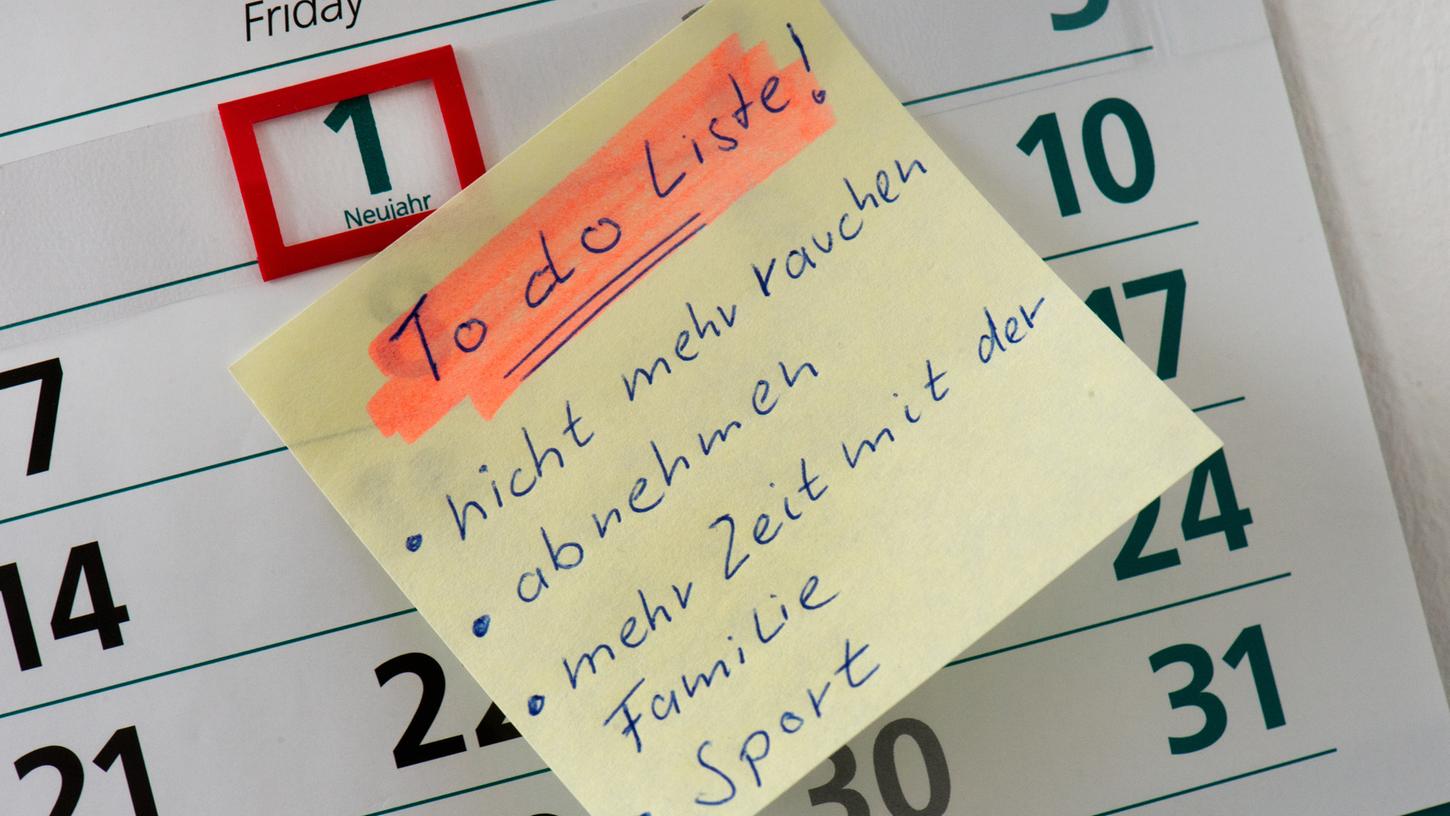 Friday
1
Neujahr
3
10
17
24
31
7
14
21
22
30
To do Liste!
• nicht mehr rauchen
• abnehmen
• mehr Zeit mit der
Familie
• Sport